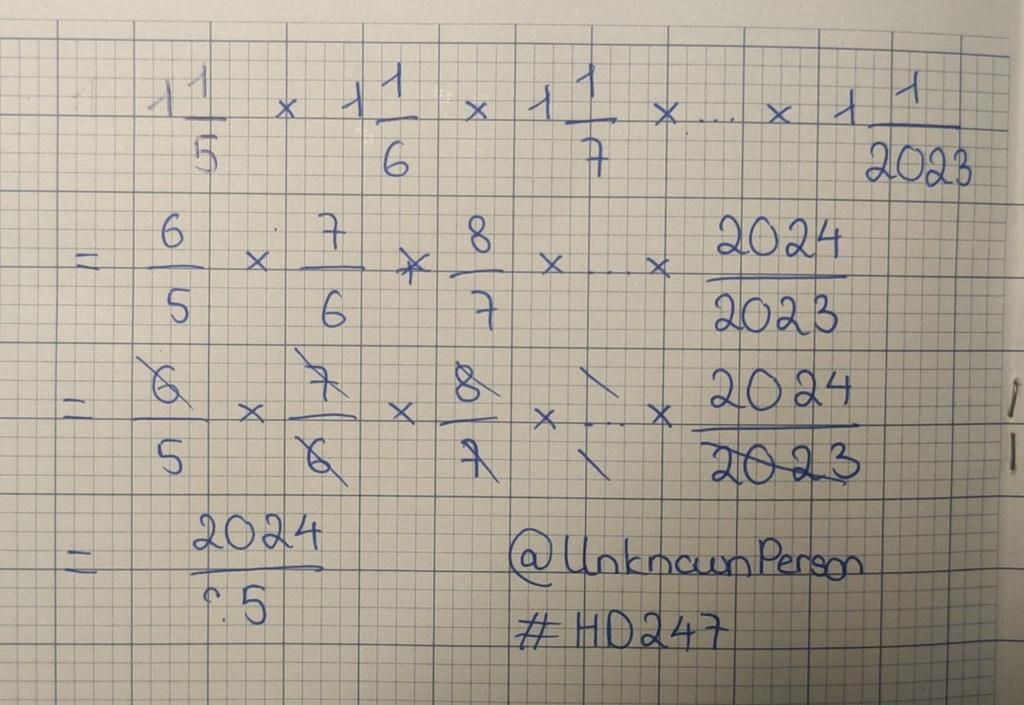 1 1/5 × 1 1/6 × 1 1/7 × ... × 1 1/2023
= 6/5 × 7/6 × 8/7 × ... × 2024/2023
= 6/5 × 7/6 × 8/7 × ... × 2024/2023
= 2024/5
@UnknownPerson
#HD247